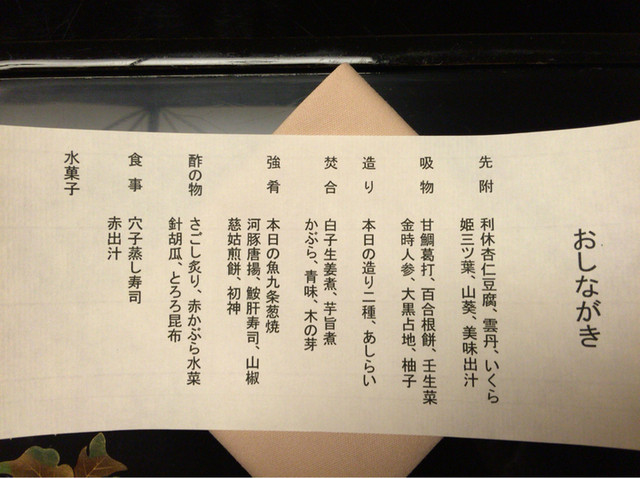 おしながき
先附 利休杏仁豆腐、雲丹、いくら
姫三ツ葉、山葵、美味出汁
吸物 甘鯛葛打、百合根餅、壬生菜
金時人参、大黒占地、柚子
造り 本日の造り二種、あしらい
焚合 白子生姜煮、芋旨煮
かぶら、青味、木の芽
強肴 本日の魚九条葱焼
河豚唐揚、鮟肝寿司、山椒
慈姑煎餅、初神
酢の物 さごし炙り、赤かぶら水菜
針胡瓜、とろろ昆布
食事 穴子蒸し寿司
赤出汁
水菓子